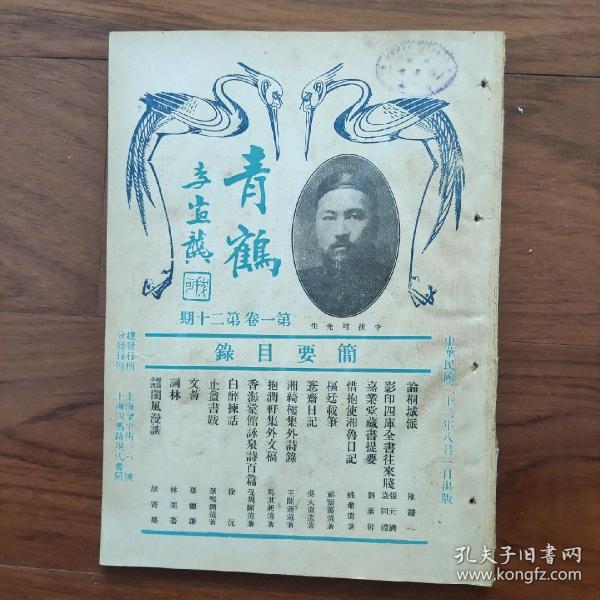 青鶴
李宣龔
李拔可先生
第一卷第二十期
簡要目錄
中華民國二十二年八月一日出版
論桐城派 陳瀏一
影印四庫全書往來牋 張元濟 袁同禮
嘉業堂藏書提要 劉承幹
惜抱使湘魯日記 姚鼐遺著
樞廷載筆
窓齋日記 吳大澂遺著
湘綺樓集外詩錄 王闓運遺著
抱潤軒集外文稿 馬其昶遺著
香海棠館詠泉詩百篇 况周頤遺著
白醉揀話 徐沅
止盦書跋 孫鳴鏘遺著
文薈 孫德謙
詞林 林開謩
閩風漫談
總發行所 上海
分發行所 上海四馬路現代書局
孔夫子旧书网
www.kongfz.com